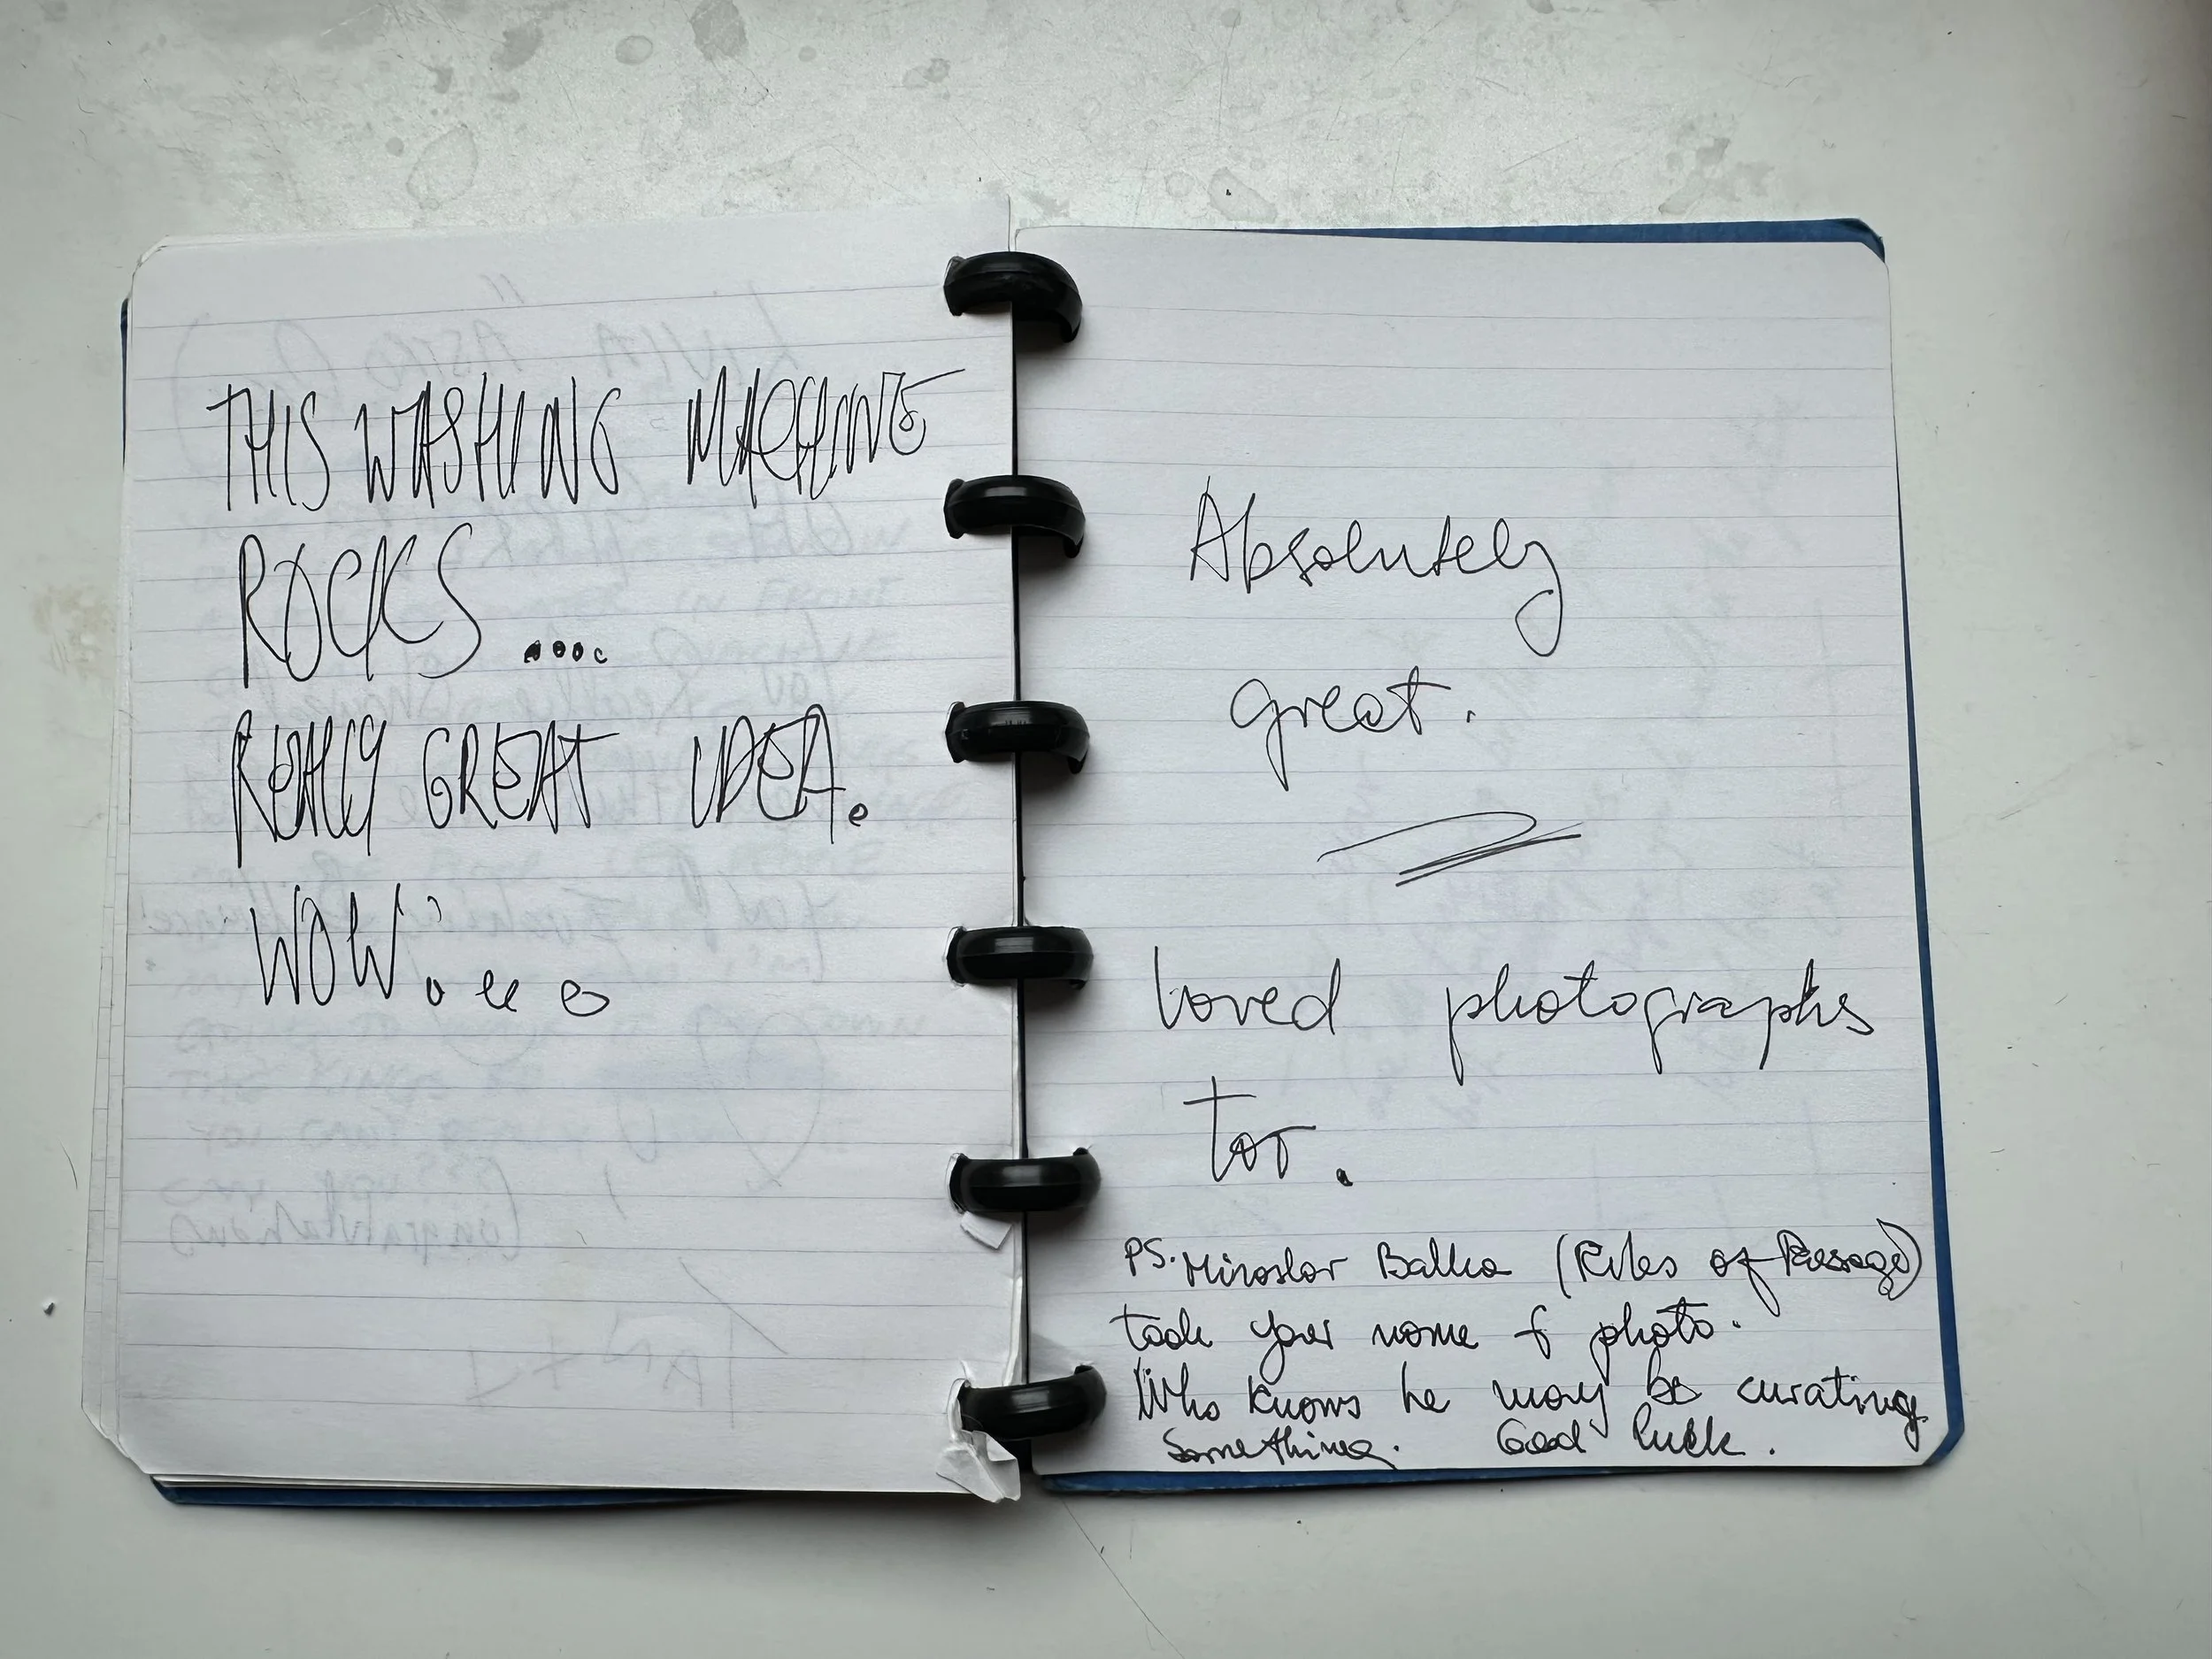 THIS WASHING MACHINE
ROCKS ....
REALLY GREAT IDEA.
WOW
Absolutely
great.
Loved photographs
too.
PS. Miroslav Balka (Rites of Passage)
took your name & photo.
Who knows he may be curating
something. Good luck.